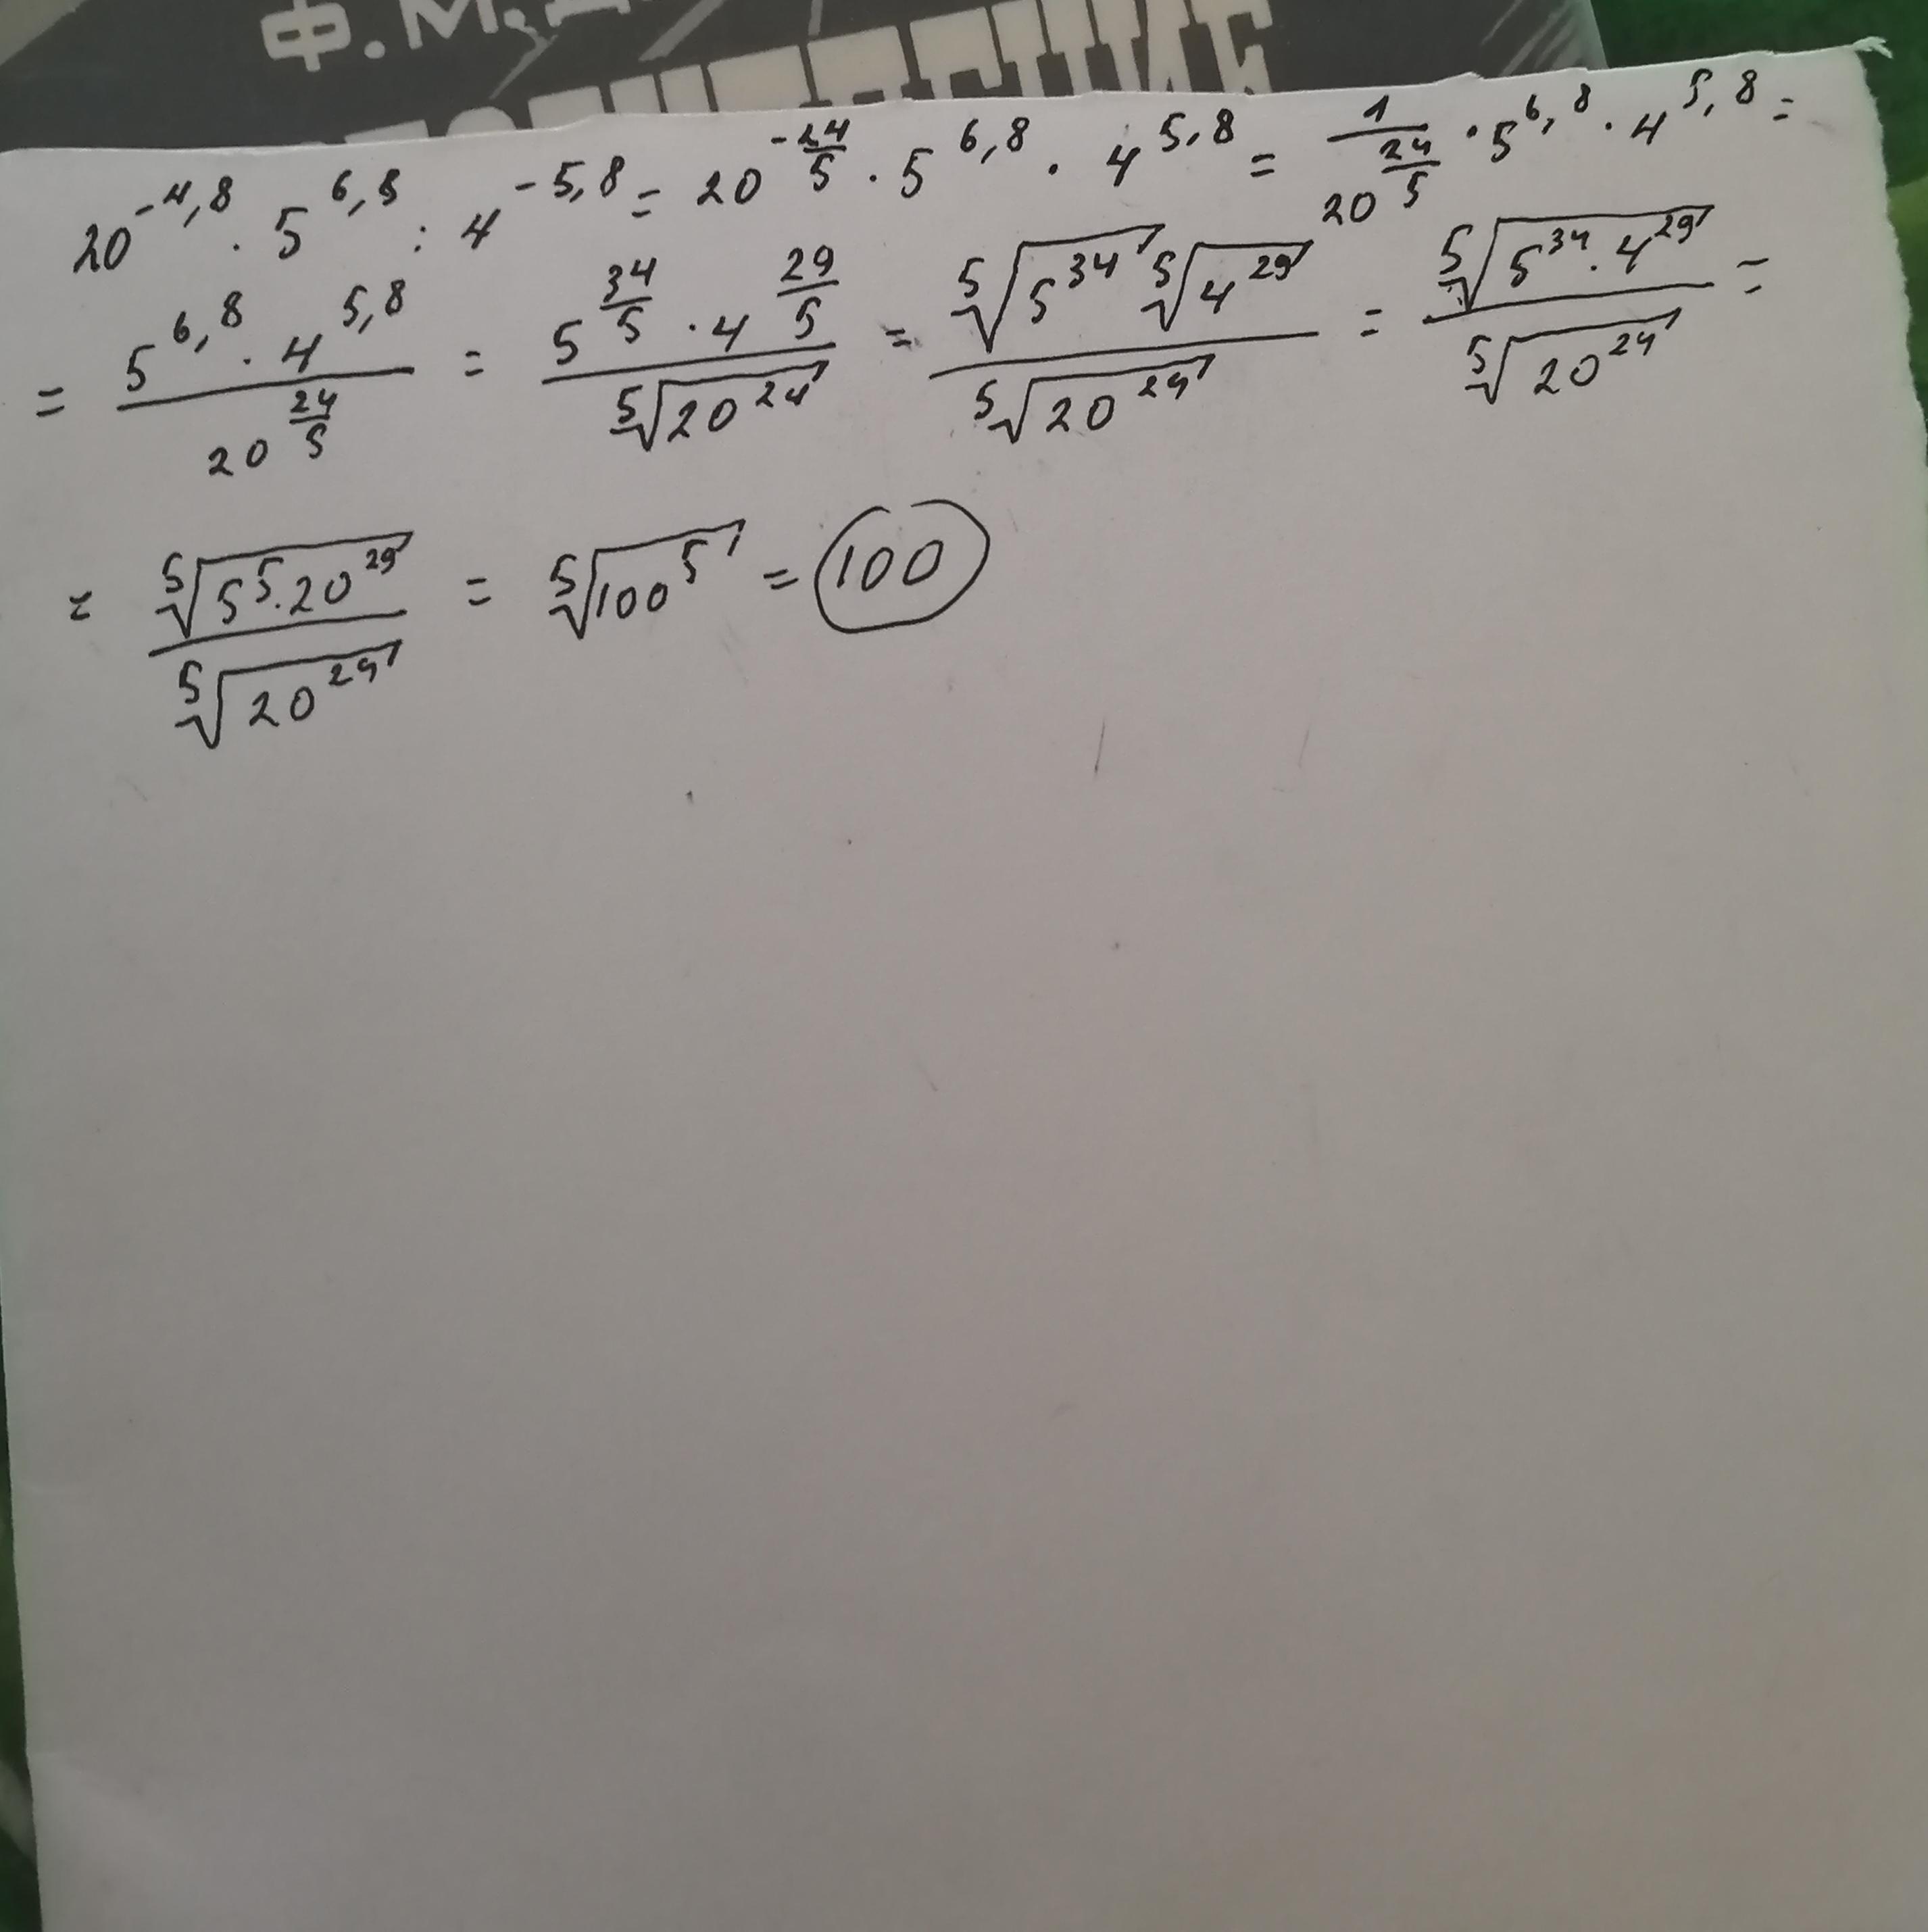 Ф. М.
20^{-4,8} · 5^{6,8} : 4^{-5,8} = 20^{-\frac{24}{5}} · 5^{6,8} · 4^{5,8} = \frac{1}{20^{\frac{24}{5}}} · 5^{6,8} · 4^{5,8} =
= \frac{5^{6,8} · 4^{5,8}}{20^{\frac{24}{5}}} = \frac{5^{\frac{34}{5}} · 4^{\frac{29}{5}}}{\sqrt[5]{20^{24}}} = \frac{\sqrt[5]{5^{34}} \sqrt[5]{4^{29}}}{\sqrt[5]{20^{24}}} = \frac{\sqrt[5]{5^{34} · 4^{29}}}{\sqrt[5]{20^{24}}} =
= \frac{\sqrt[5]{5^{5} · 20^{29}}}{\sqrt[5]{20^{24}}} = \sqrt[5]{100^{5}} = 100